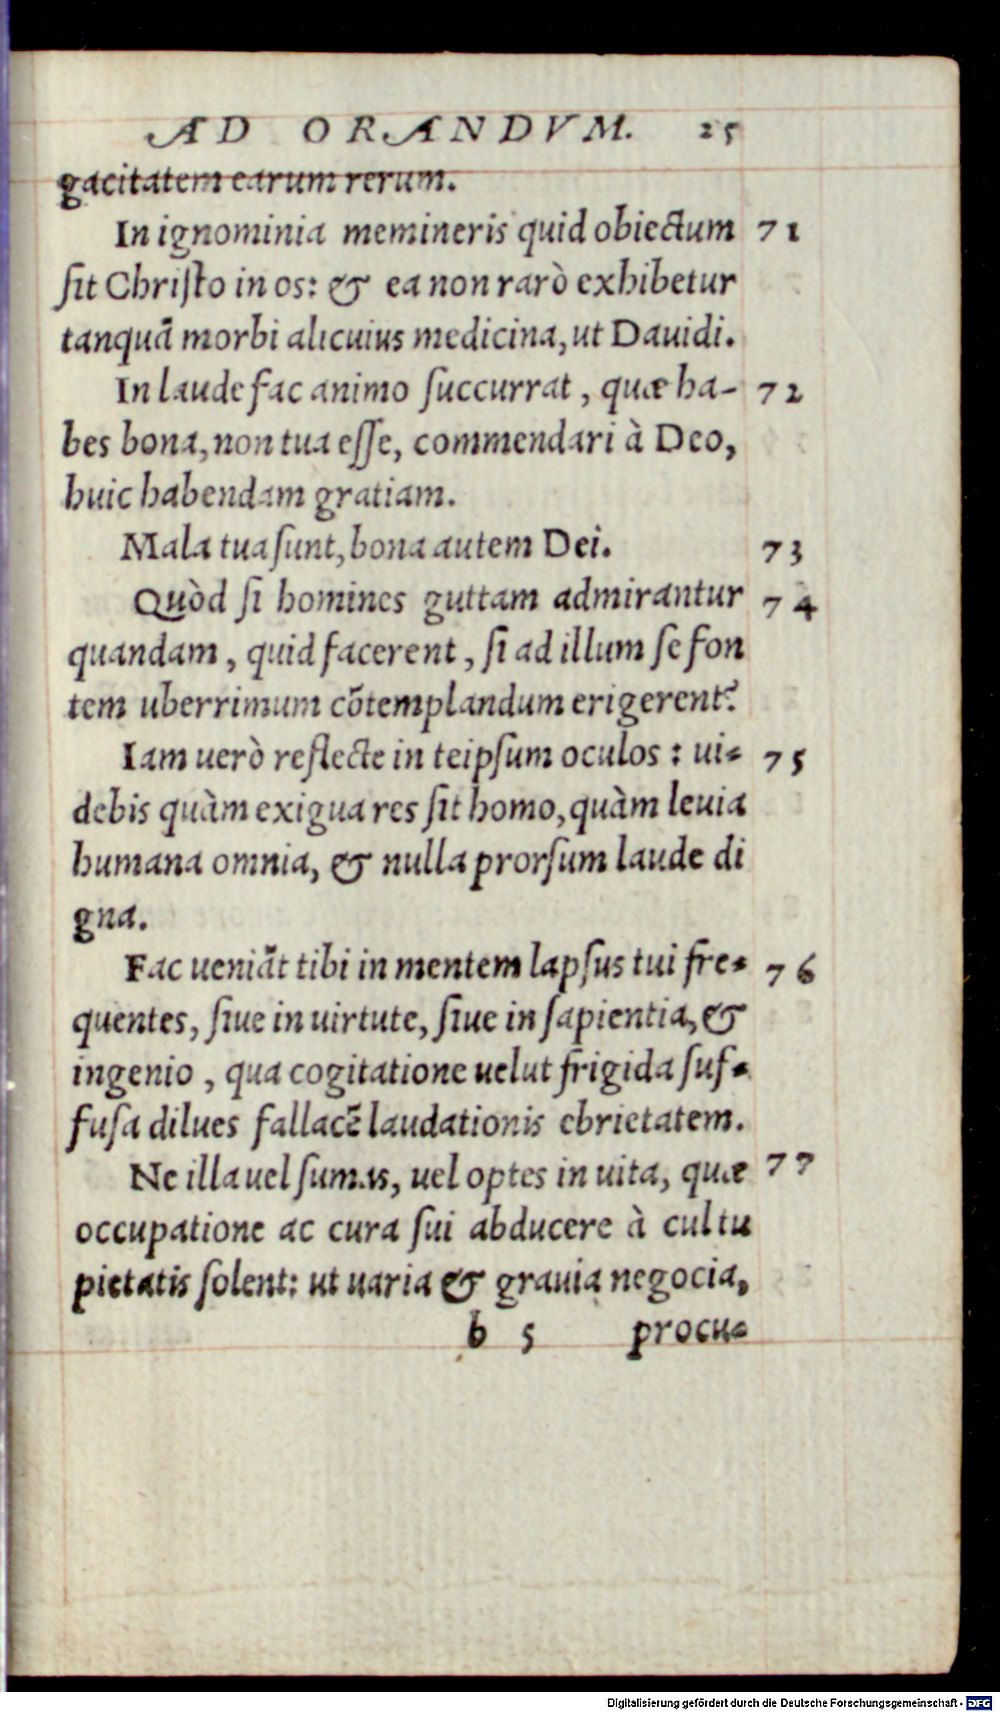 AD ORANDVM. 25
gacitatem earum rerum.
In ignominia memineris quid obiectum 71
sit Christo in os: & ea non rarò exhibetur
tanquã morbi alicuius medicina, ut Dauidi.
In laude fac animo succurrat, quæ ha- 72
bes bona, non tua esse, commendari à Deo,
huic habendam gratiam.
Mala tua sunt, bona autem Dei. 73
Quòd si homines guttam admirantur 74
quandam, quid facerent, si ad illum se fon
tem uberrimum cõtemplandum erigerent?
Iam uerò reflecte in teipsum oculos: ui- 75
debis quàm exigua res sit homo, quàm leuia
humana omnia, & nulla prorsum laude di
gna.
Fac ueniãt tibi in mentem lapsus tui fre- 76
quentes, siue in uirtute, siue in sapientia, &
ingenio, qua cogitatione uelut frigida suf-
fusa dilues fallacẽ laudationis ebrietatem.
Ne illa uel sumas, uel optes in uita, quæ 77
occupatione ac cura sui abducere à cultu
pietatis solent: ut uaria & grauia negocia,
b 5 procu-
Digitalisierung gefördert durch die Deutsche Forschungsgemeinschaft - DFG